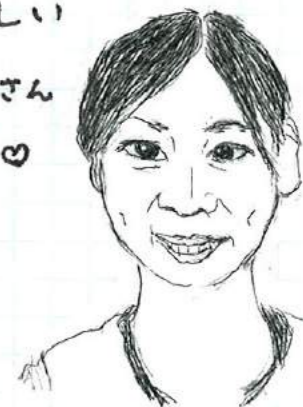 しい
さん
♡